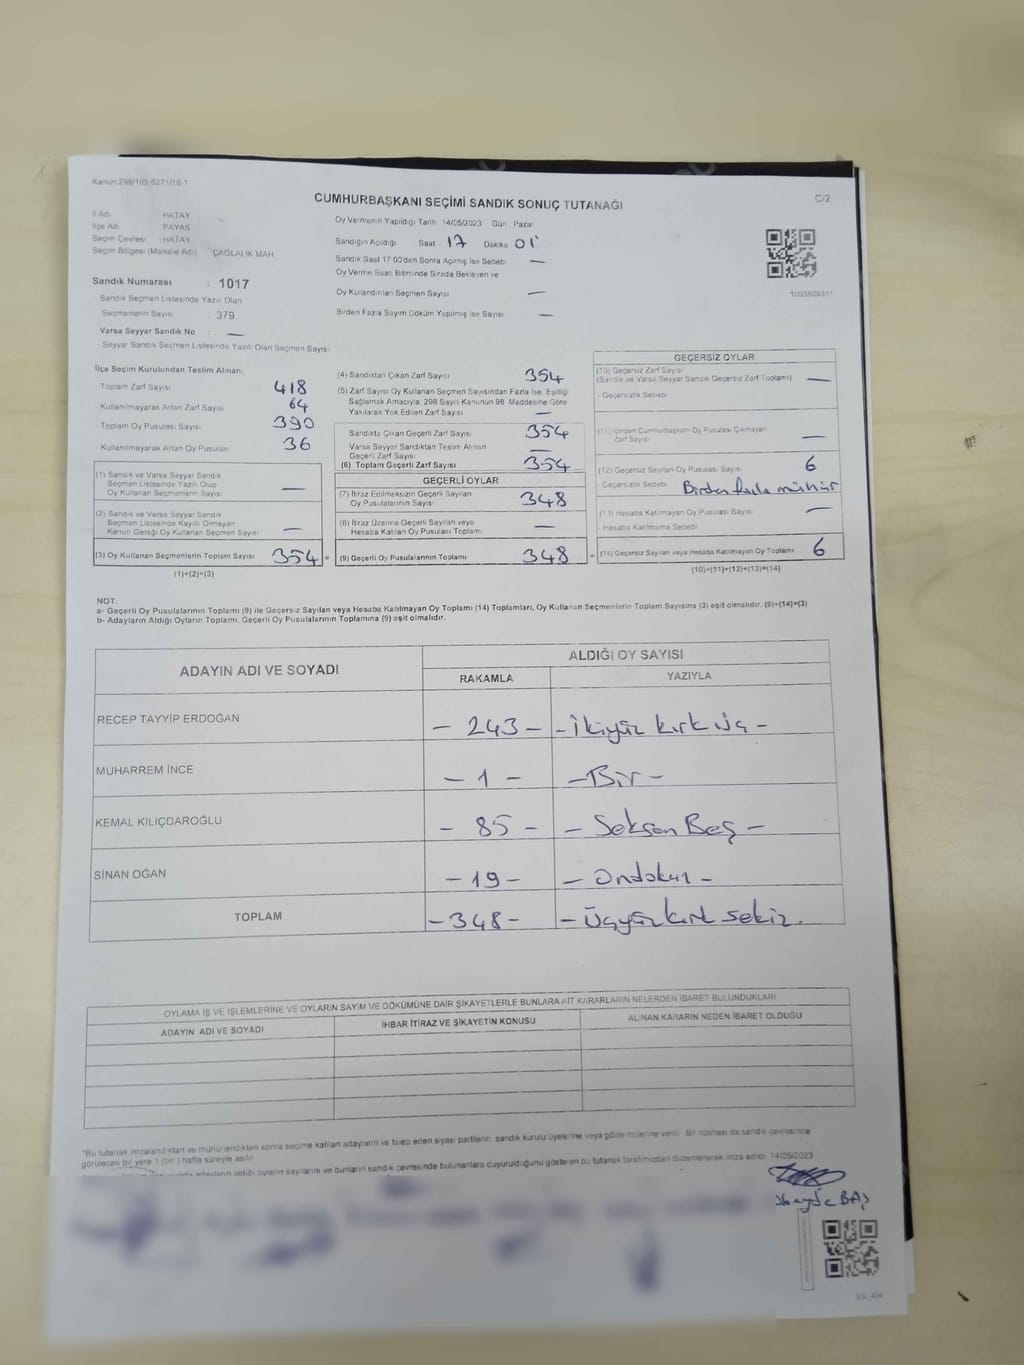 Kanun:298/105;6271/18.1
CUMHURBAŞKANI SEÇİMİ SANDIK SONUÇ TUTANAĞI
C/2
İl Adı : HATAY
İlçe Adı : PAYAS
Seçim Çevresi : HATAY
Seçim Bölgesi (Mahalle Adı) : ÇAĞLALIK MAH
Sandık Numarası : 1017
- Sandık Seçmen Listesinde Yazılı Olan
Seçmenlerin Sayısı : 379
Varsa Seyyar Sandık No : —
- Seyyar Sandık Seçmen Listesinde Yazılı Olan Seçmen Sayısı
Oy Vermenin Yapıldığı Tarih: 14/05/2023 Gün: Pazar
Sandığın Açıldığı Saat 17 Dakika 01
Sandık Saat 17:00'den Sonra Açılmış İse Sebebi —
Oy Verme Saati Bitiminde Sırada Bekleyen ve
Oy Kullandırılan Seçmen Sayısı —
Birden Fazla Sayım Döküm Yapılmış İse Sayısı —
1093809311
İlçe Seçim Kurulundan Teslim Alınan;
- Toplam Zarf Sayısı 418
- Kullanılmayarak Artan Zarf Sayısı 64
- Toplam Oy Pusulası Sayısı 390
- Kullanılmayarak Artan Oy Pusulası 36
(1) Sandık ve Varsa Seyyar Sandık
Seçmen Listesinde Yazılı Olup
Oy Kullanan Seçmenlerin Sayısı —
(2) Sandık ve Varsa Seyyar Sandık
Seçmen Listesinde Kayıtlı Olmayan
Kanun Gereği Oy Kullanan Seçmen Sayısı —
(3) Oy Kullanan Seçmenlerin Toplam Sayısı 354 =
(1)+(2)=(3)
(4) Sandıktan Çıkan Zarf Sayısı 354
(5) Zarf Sayısı Oy Kullanan Seçmen Sayısından Fazla İse, Eşitliği
Sağlamak Amacıyla, 298 Sayılı Kanunun 98. Maddesine Göre
Yakılarak Yok Edilen Zarf Sayısı —
Sandıkta Çıkan Geçerli Zarf Sayısı 354
Varsa Seyyar Sandıktan Teslim Alınan
Geçerli Zarf Sayısı —
(6) Toplam Geçerli Zarf Sayısı 354
GEÇERLİ OYLAR
(7) İtiraz Edilmeksizin Geçerli Sayılan
Oy Pusulalarının Sayısı 348
(8) İtiraz Üzerine Geçerli Sayılan veya
Hesaba Katılan Oy Pusulası Toplamı —
(9) Geçerli Oy Pusulalarının Toplamı 348 =
GEÇERSİZ OYLAR
(10) Geçersiz Zarf Sayısı
(Sandık ve Varsa Seyyar Sandık Geçersiz Zarf Toplamı) —
- Geçersizlik Sebebi
(11) İçinden Cumhurbaşkanı Oy Pusulası Çıkmayan
Zarf Sayısı —
(12) Geçersiz Sayılan Oy Pusulası Sayısı 6
- Geçersizlik Sebebi Birden fazla mühür
(13) Hesaba Katılmayan Oy Pusulası Sayısı —
- Hesaba Katılmama Sebebi
(14) Geçersiz Sayılan veya Hesaba Katılmayan Oy Toplamı 6
(10)+(11)+(12)+(13)=(14)
NOT:
a- Geçerli Oy Pusulalarının Toplamı (9) ile Geçersiz Sayılan veya Hesaba Katılmayan Oy Toplamı (14) Toplamları, Oy Kullanan Seçmenlerin Toplam Sayısına (3) eşit olmalıdır. (9)+(14)=(3)
b- Adayların Aldığı Oyların Toplamı, Geçerli Oy Pusulalarının Toplamına (9) eşit olmalıdır.
ADAYIN ADI VE SOYADI
ALDIĞI OY SAYISI
RAKAMLA YAZIYLA
RECEP TAYYİP ERDOĞAN - 243 - - İkiyüz kırk üç -
MUHARREM İNCE - 1 - - Bir -
KEMAL KILIÇDAROĞLU - 85 - - Seksen Beş -
SİNAN OĞAN - 19 - - Ondokuz -
TOPLAM - 348 - - Üçyüz kırk sekiz.
OYLAMA İŞ VE İŞLEMLERİNE VE OYLARIN SAYIM VE DÖKÜMÜNE DAİR ŞİKAYETLERLE BUNLARA AİT KARARLARIN NELERDEN İBARET BULUNDUKLARI
ADAYIN ADI VE SOYADI İHBAR İTİRAZ VE ŞİKAYETİN KONUSU ALINAN KARARIN NEDEN İBARET OLDUĞU
*Bu tutanak imzalandıktan ve mühürlendikten sonra seçime katılan adayların ve talep eden siyasi partilerin sandık kurulu üyelerine veya gözlemcilerine verilir. Bir nüshası da sandık çevresinde
görülecek bir yere 1 (bir) hafta süreyle asılır.
adayların aldığı oyların sayılarını ve bunların sandık çevresinde bulunanlara duyurulduğunu gösteren bu tutanak tarafımızdan düzenlenerek imza edildi. 14/05/2023
BAŞ